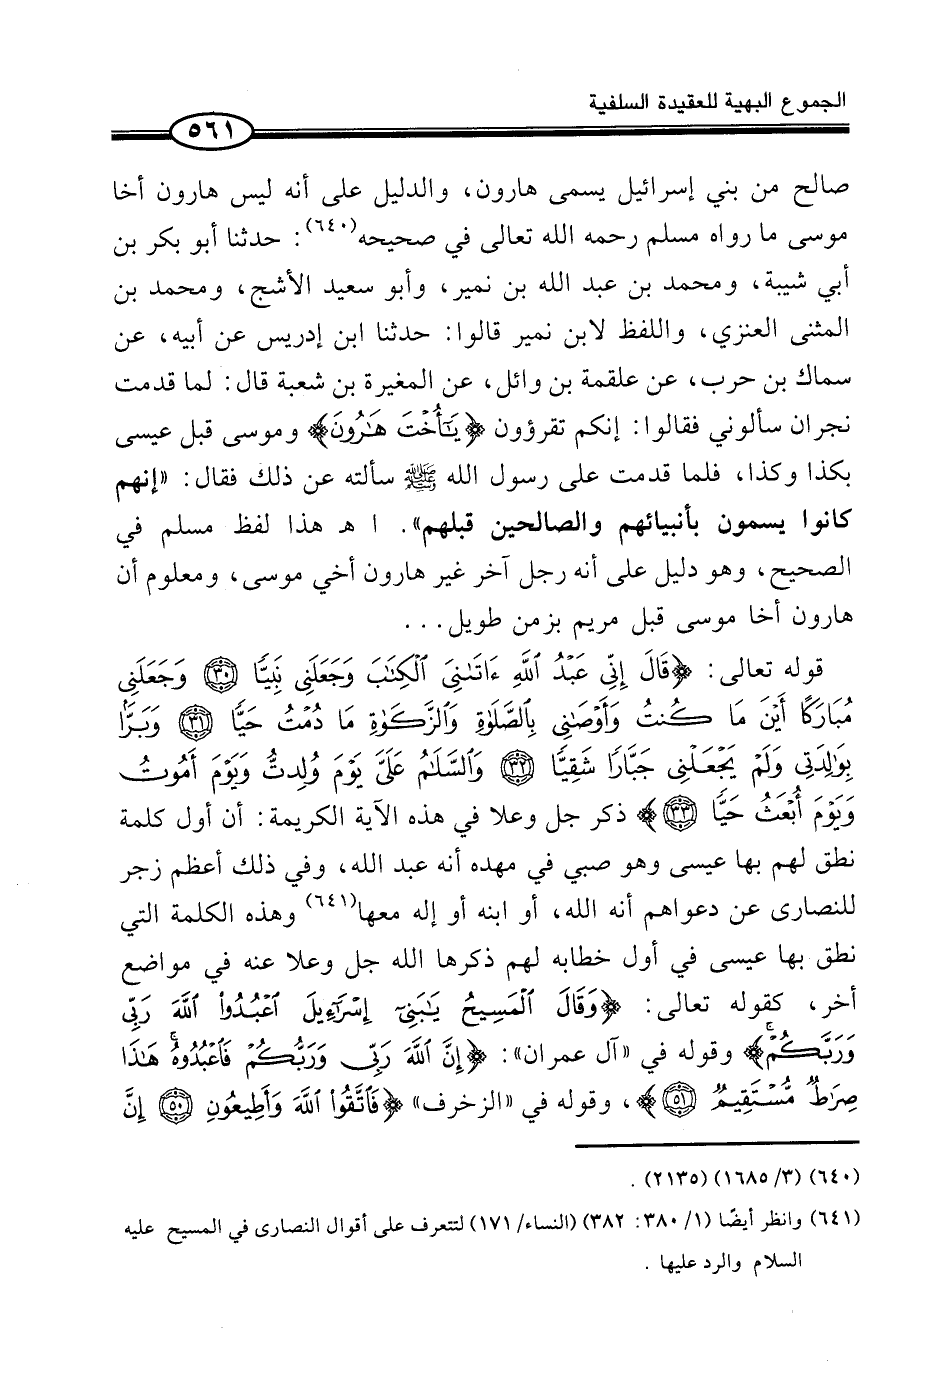 الجموع البهية للعقيدة السلفية
٥٦١
صالح من بني إسرائيل يسمى هارون، والدليل على أنه ليس هارون أخا
موسى ما رواه مسلم رحمه الله تعالى في صحيحه(٦٤٠): حدثنا أبو بكر بن
أبي شيبة، ومحمد بن عبد الله بن نمير، وأبو سعيد الأشج، ومحمد بن
المثنى العنزي، واللفظ لابن نمير قالوا: حدثنا ابن إدريس عن أبيه، عن
سماك بن حرب، عن علقمة بن وائل، عن المغيرة بن شعبة قال: لما قدمت
نجران سألوني فقالوا: إنكم تقرؤون ﴿يَٰٓأُخْتَ هَٰرُونَ﴾ وموسى قبل عيسى
بكذا وكذا، فلما قدمت على رسول الله ﷺ سألته عن ذلك فقال: «إنهم
كانوا يسمون بأنبيائهم والصالحين قبلهم». ا هـ هذا لفظ مسلم في
الصحيح، وهو دليل على أنه رجل آخر غير هارون أخي موسى، ومعلوم أن
هارون أخا موسى قبل مريم بزمن طويل...
قوله تعالى: ﴿قَالَ إِنِّي عَبْدُ ٱللَّهِ ءَاتَىٰنِيَ ٱلْكِتَٰبَ وَجَعَلَنِي نَبِيًّا ٣٠ وَجَعَلَنِي
مُبَارَكًا أَيْنَ مَا كُنتُ وَأَوْصَٰنِي بِٱلصَّلَوٰةِ وَٱلزَّكَوٰةِ مَا دُمْتُ حَيًّا ٣١ وَبَرًّۢا
بِوَٰلِدَتِي وَلَمْ يَجْعَلْنِي جَبَّارًا شَقِيًّا ٣٢ وَٱلسَّلَٰمُ عَلَيَّ يَوْمَ وُلِدتُّ وَيَوْمَ أَمُوتُ
وَيَوْمَ أُبْعَثُ حَيًّا ٣٣﴾ ذكر جل وعلا في هذه الآية الكريمة: أن أول كلمة
نطق لهم بها عيسى وهو صبي في مهده أنه عبد الله، وفي ذلك أعظم زجر
للنصارى عن دعواهم أنه الله، أو ابنه أو إله معها(٦٤١) وهذه الكلمة التي
نطق بها عيسى في أول خطابه لهم ذكرها الله جل وعلا عنه في مواضع
أخر، كقوله تعالى: ﴿وَقَالَ ٱلْمَسِيحُ يَٰبَنِيٓ إِسْرَٰٓءِيلَ ٱعْبُدُواْ ٱللَّهَ رَبِّي
وَرَبَّكُمْۖ﴾ وقوله في «آل عمران»: ﴿إِنَّ ٱللَّهَ رَبِّي وَرَبُّكُمْ فَٱعْبُدُوهُۗ هَٰذَا
صِرَٰطٌ مُّسْتَقِيمٌ ٥١﴾، وقوله في «الزخرف» ﴿فَٱتَّقُواْ ٱللَّهَ وَأَطِيعُونِ ٥٠ إِنَّ
(٦٤٠) (٣/ ١٦٨٥) (٢١٣٥) .
(٦٤١) وانظر أيضًا (١/ ٣٨٠: ٣٨٢) (النساء/ ١٧١) لتتعرف على أقوال النصارى في المسيح عليه
السلام والرد عليها .